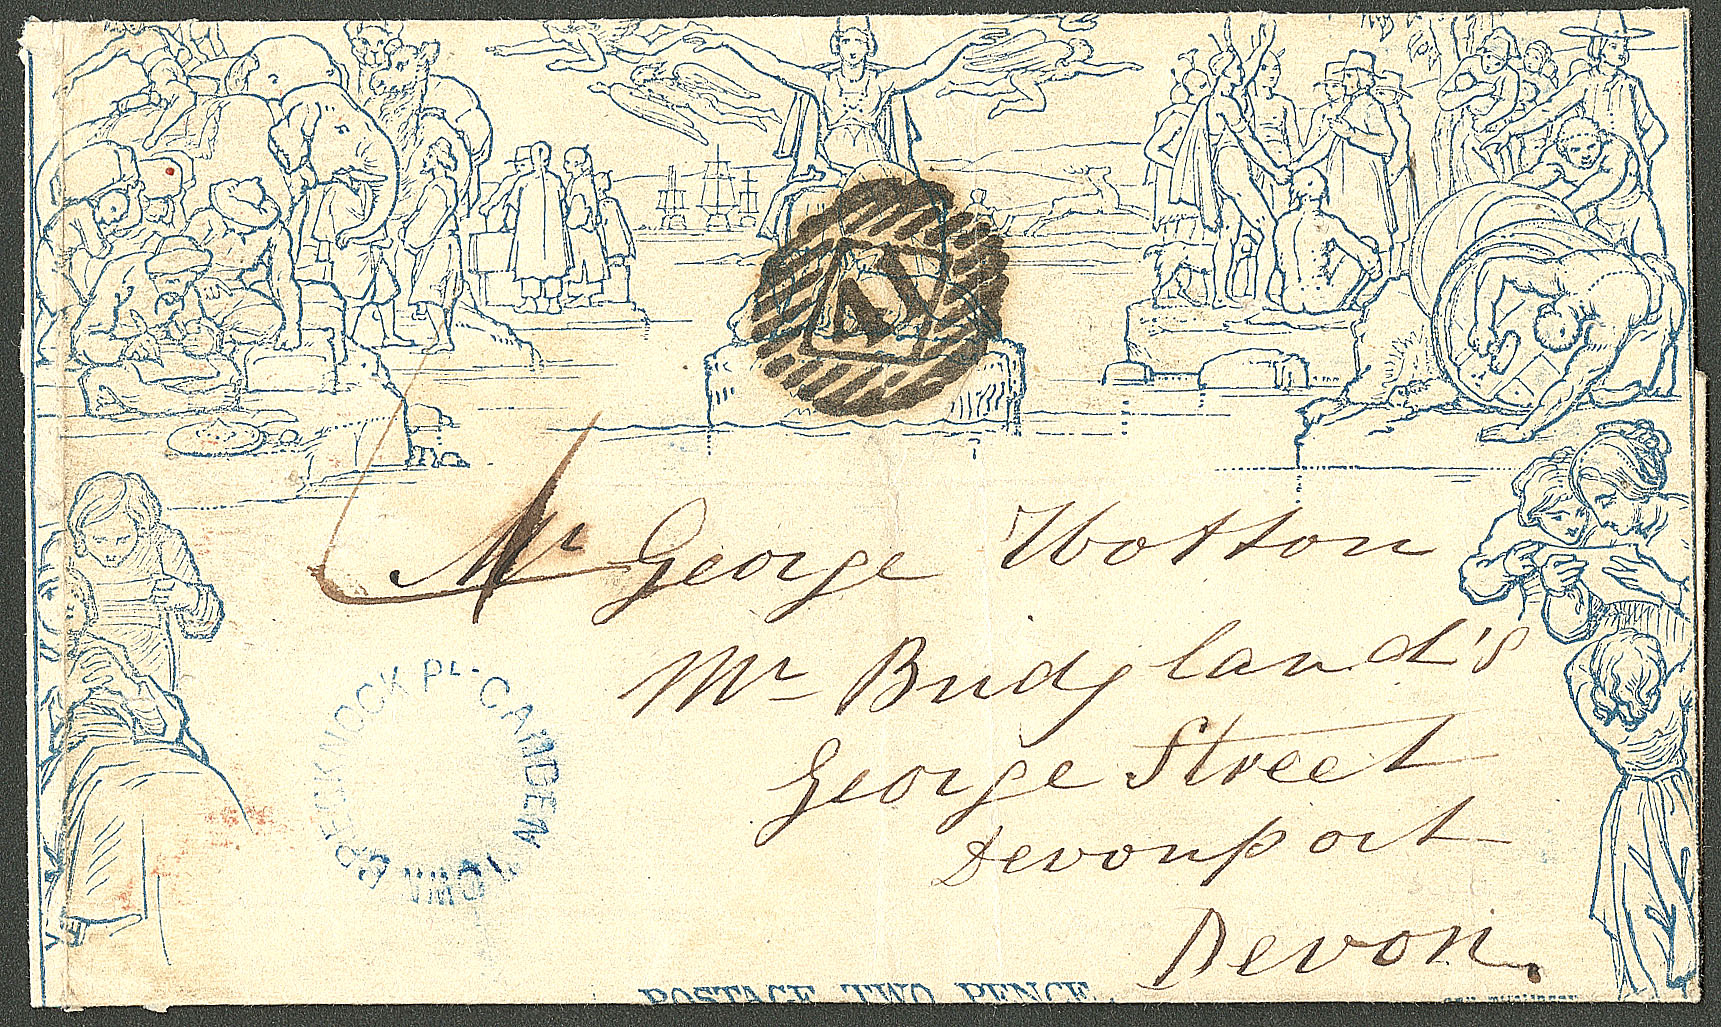 41
Mr George Wotton
Mr Bridgland's
George Street
Devonport
Devon.
BRECKNOCK PL. CAMDEN TOWN
POSTAGE TWO PENCE.